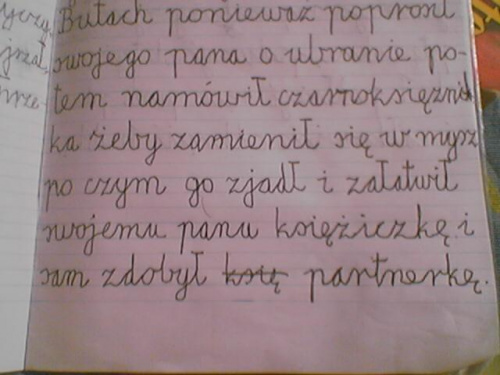 Butach ponieważ poprosił
swojego pana o ubranie po-
tem namówił czarnoksiężni
ka żeby zamienił się w mysz
po czym go zjadł i załatwił
swojemu panu księżiczkę i
sam zdobył księ partnerkę.